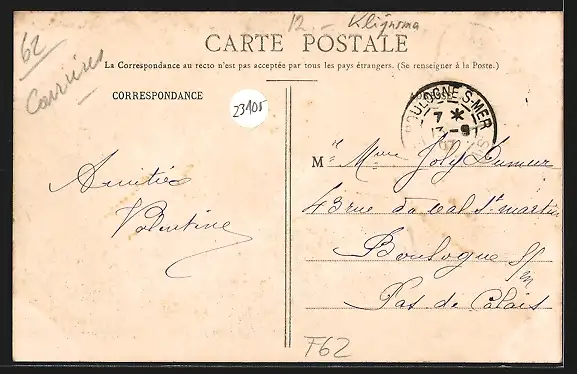 12.- Klijnsma
62
CARTE POSTALE
Carrières
La Correspondance au recto n'est pas acceptée par tous les pays étrangers. (Se renseigner à la Poste.)
CORRESPONDANCE
23405
BOULOGNE S-MER
7 *
13 -9
M Mme Joly Dumeur
43 rue du val St martin
Boulogne s/s
en
Pas de Calais
Amitiés
Valentine
F62